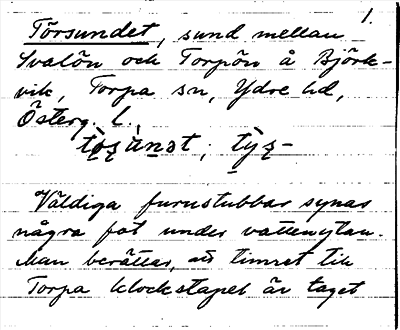 1.
Törsundet, sund mellan
Svalön och Torpön å Björk-
vik, Torpa sn, Ydre hd,
Österg. l.
Väldiga furustubbar synas
några fot under vattenytan.
Man berättar, att timret till
Torpa klockstapel är taget